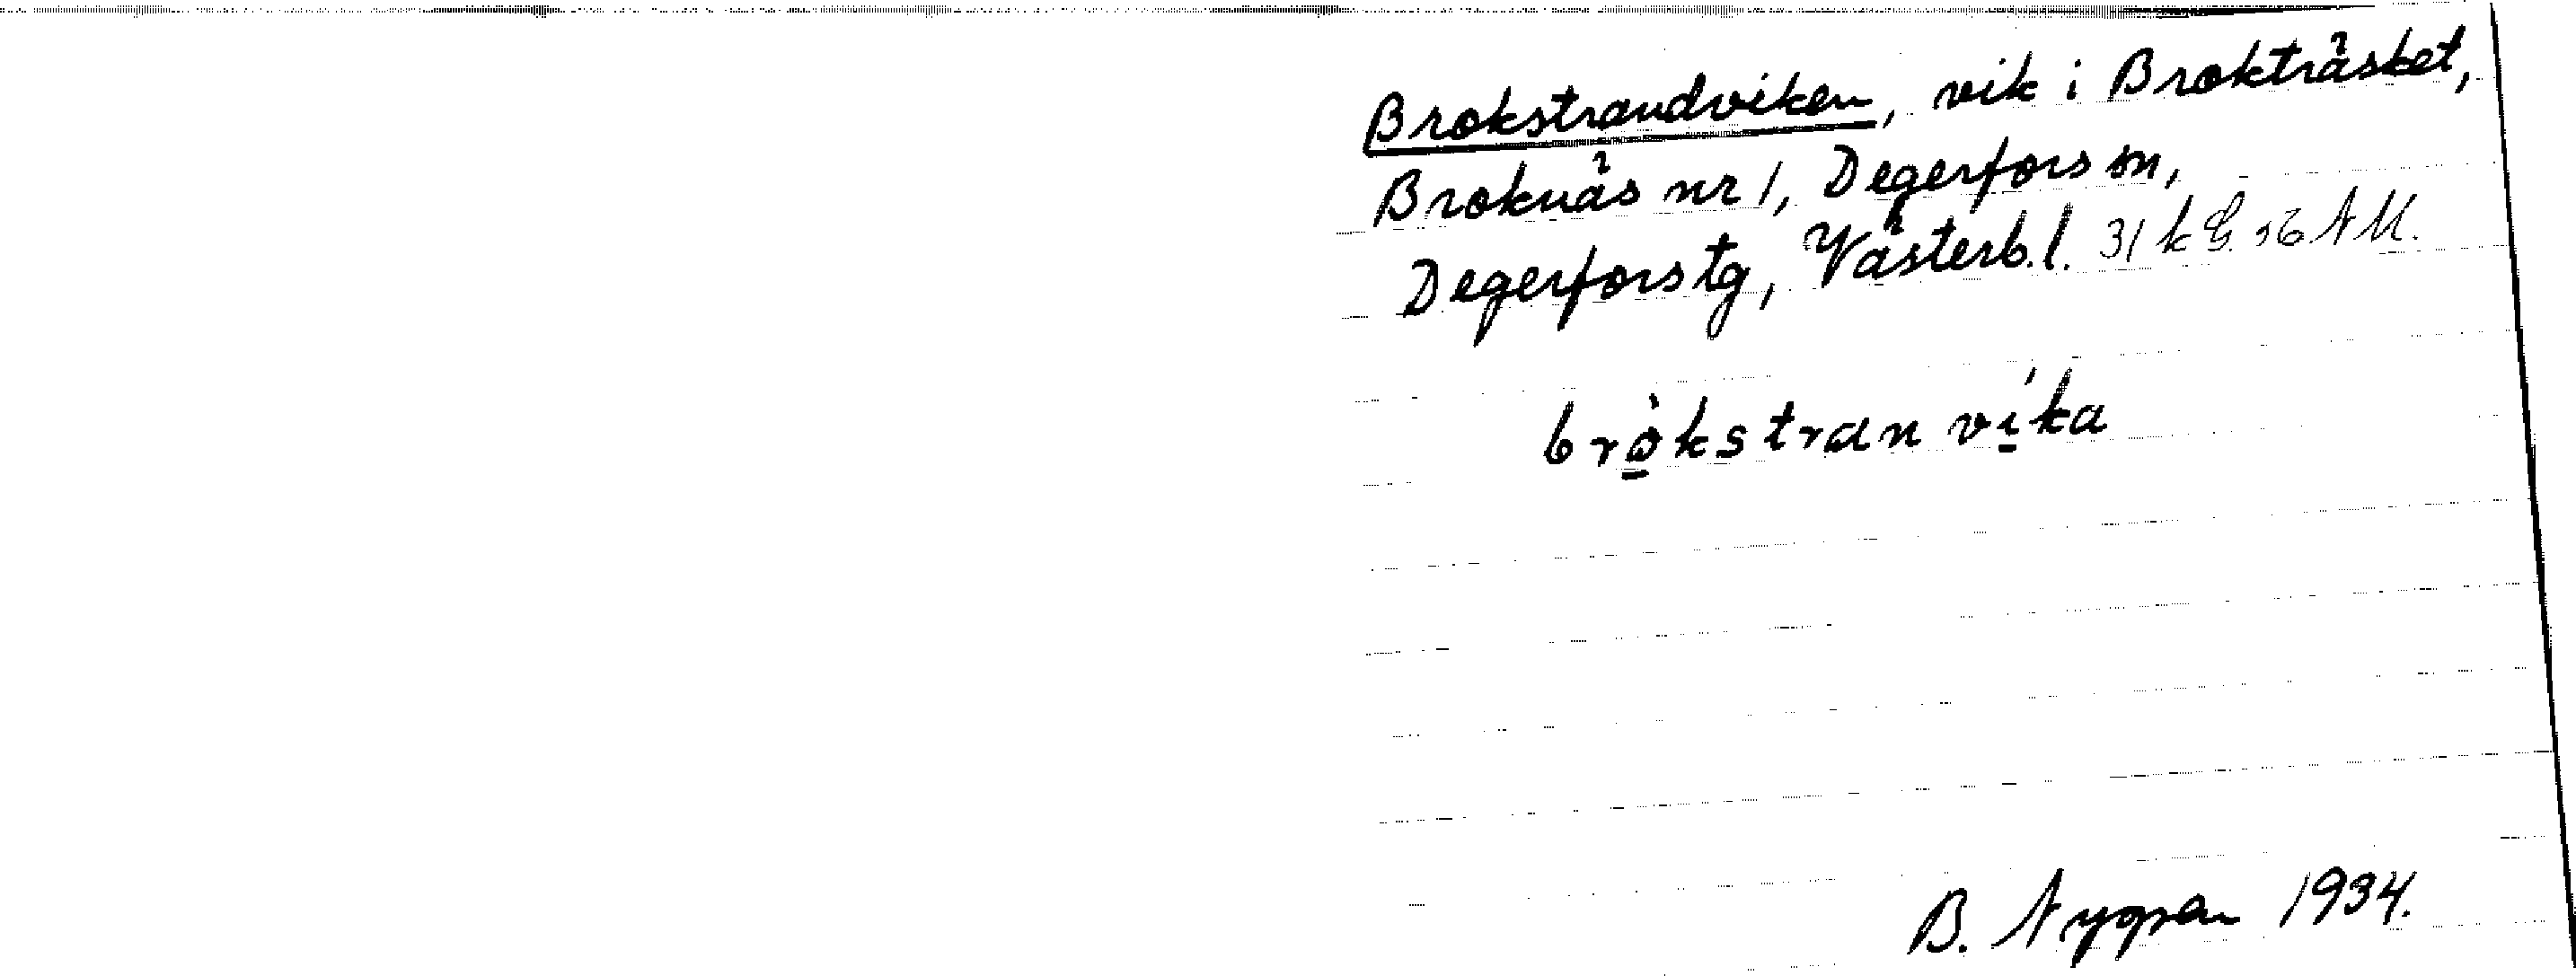 Brokstrandviken, vik i Brokträsket,
Broknäs nr 1, Degerfors sn,
Degerfors tg, Västerb. l. 31 k
bròkstranvíka
B. Nygren 1934.